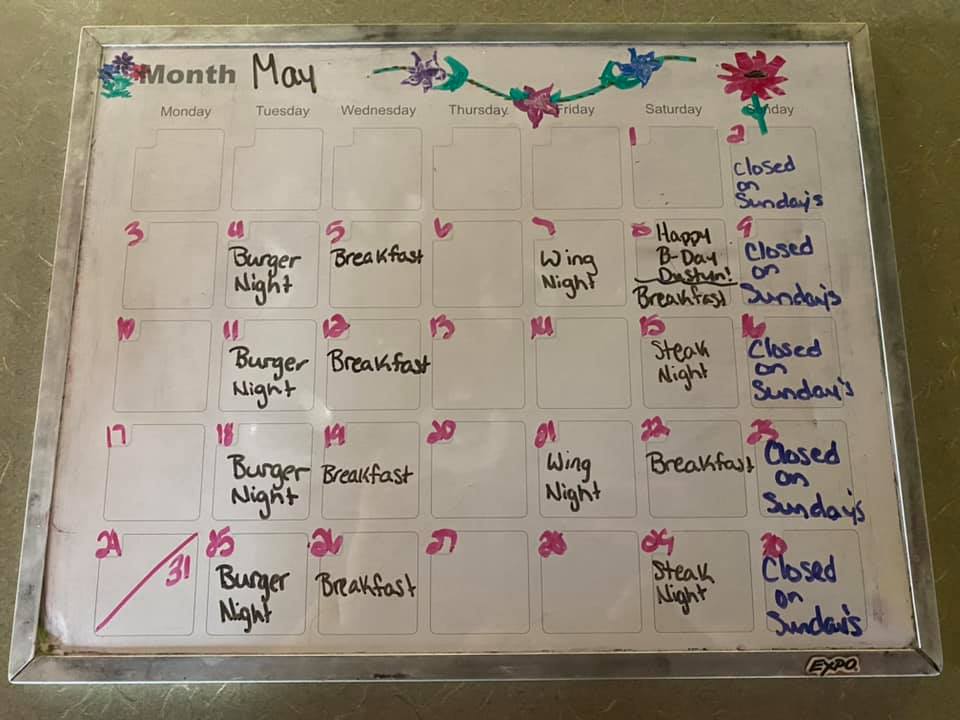 Month May
Monday Tuesday Wednesday Thursday Friday Saturday Sunday
1 2
Closed
on
Sunday's
3 4 5 6 7 8 9
Burger
Night
Breakfast
Wing
Night
Happy
B-Day
Dustyn!
Breakfast
Closed
on
Sunday's
10 11 12 13 14 15 16
Burger
Night
Breakfast
Steak
Night
Closed
on
Sunday's
17 18 19 20 21 22 23
Burger
Night
Breakfast
Wing
Night
Breakfast
Closed
on
Sunday's
24 31 25 26 27 28 29 30
Burger
Night
Breakfast
Steak
Night
Closed
on
Sunday's
EXPO